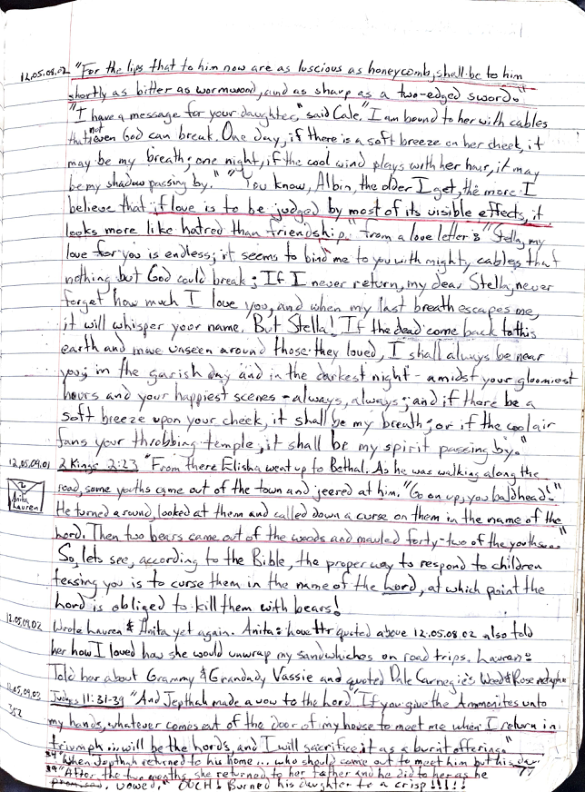 12.05.08.02 "For the lips that to him now are as luscious as honeycomb, shall be to him
shortly as bitter as wormwood, and as sharp as a two-edged sword."
"I have a message for your daughter," said Cale. "I am bound to her with cables
that not even God can break. One day, if there is a soft breeze on her cheek, it
may be my breath; one night, if the cool wind plays with her hair, it may
be my shadow passing by." "You know, Albin, the older I get, the more I
believe that if love is to be judged by most of its visible effects, it
looks more like hatred than friendship." From a love letter: "Stella, my
love for you is endless; it seems to bind me to you with mighty cables that
nothing but God could break; If I never return, my dear Stella, never
forget how much I love you, and when my last breath escapes me,
it will whisper your name. But Stella! If the dead come back to this
earth and move unseen around those they loved, I shall always be near
you; in the garish day and in the darkest night - amidst your gloomiest
hours and your happiest scenes - always, always; and if there be a
soft breeze upon your cheek, it shall be my breath; or if the cool air
fans your throbbing temple, it shall be my spirit passing by."
12.05.09.01 2 Kings 2:23 "From there Elisha went up to Bethal. As he was walking along the
2 Anita Lauren road, some youths came out of the town and jeered at him. "Go on up, you baldhead!"
He turned around, looked at them and called down a curse on them in the name of the
Lord. Then two bears came out of the woods and mauled forty-two of the youths..."
So, lets see, according to the Bible, the proper way to respond to children
teasing you is to curse them in the name of the Lord, at which point the
Lord is obliged to kill them with bears!
12.05.09.02 Wrote Lauren & Anita yet again. Anita: love quoted above 12.05.08.02 also told
her how I loved how she would unwrap my sandwhiches on road trips. Lauren:
Told her about Grammy & Grandady Vassie and quoted Dale Carnegie's Weed & Rose metaphor
12.05.09.03 Judges 11:31-39 "And Jepthah made a vow to the Lord "If you give the Ammonites unto
352 my hands, whatever comes out of the door of my house to meet me when I return in
triumph ... will be the Lords, and I will sacrifice it as a burnt offering."
34 "When Jepthah returned to his home... who should come out to meet him but his
39 "After the two months, she returned to her father and he did to her as he
vowed." OUCH! Burned his daughter to a crisp!!!!!
77